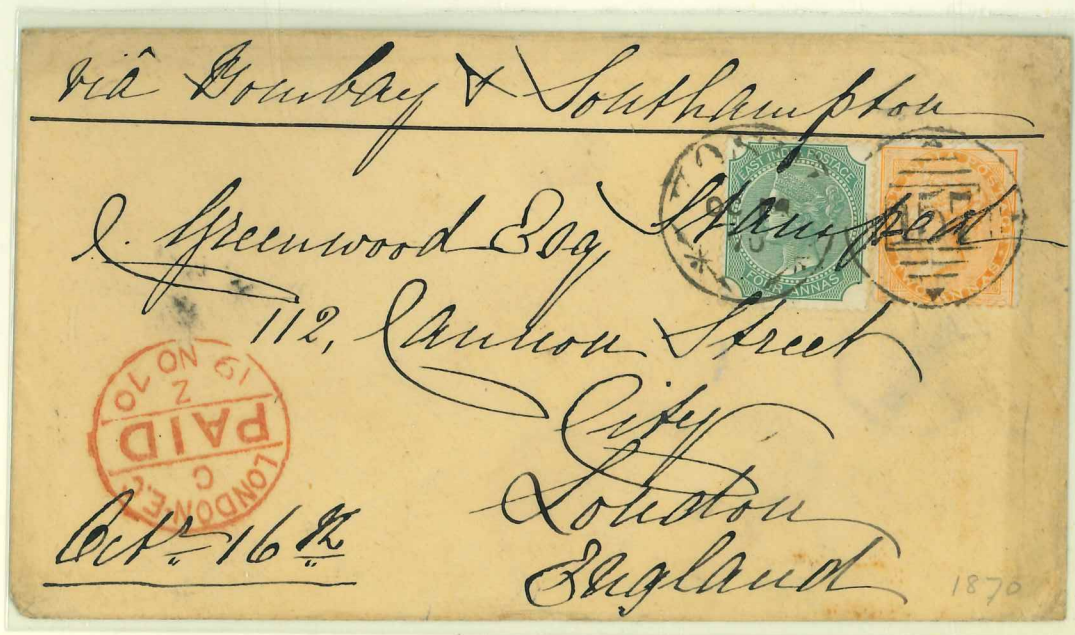 viâ Bombay & Southampton
Stamped
EAST INDIA POSTAGE
FOUR ANNAS
J. Greenwood Esq
112, Cannon Street
City
London
England
LONDON-E.C
C
PAID
Z
19 NO 70
Octr 16th
1870